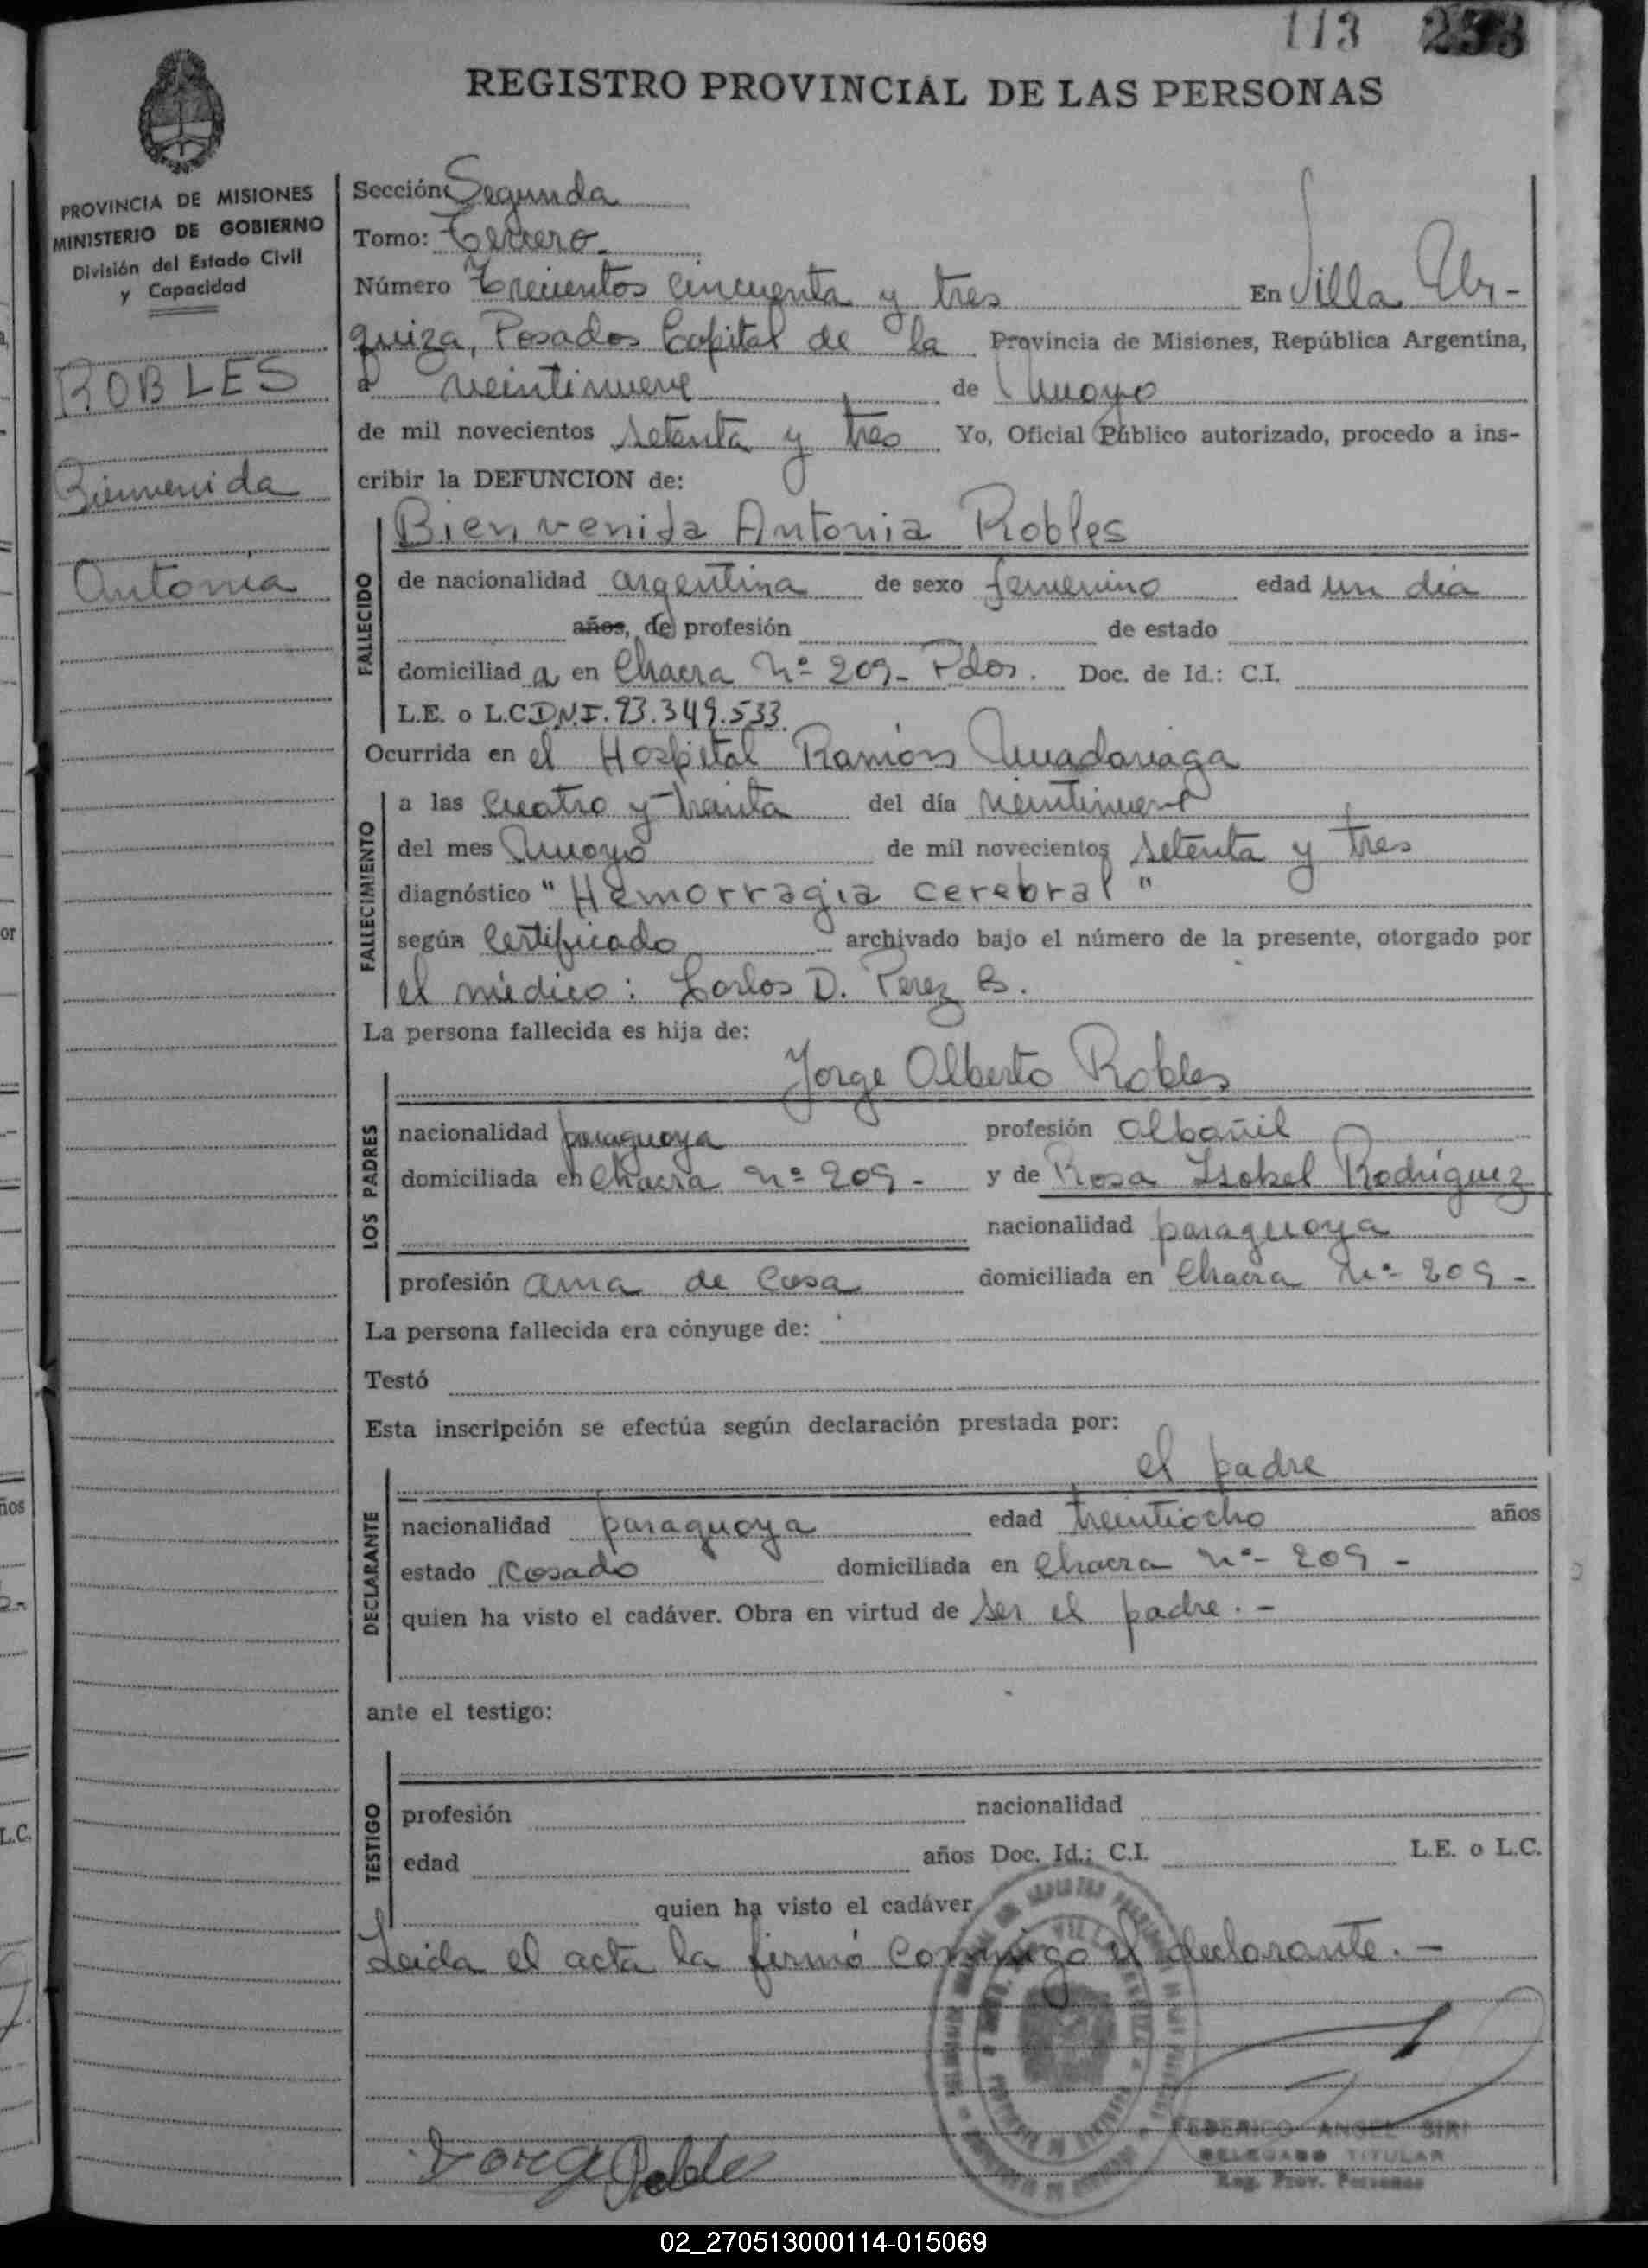 113 253
REGISTRO PROVINCIAL DE LAS PERSONAS
PROVINCIA DE MISIONES
MINISTERIO DE GOBIERNO
División del Estado Civil
y Capacidad
ROBLES
Bienvenida
Antonia
Sección: Segunda
Tomo: Tercero.
Número Trecientos cincuenta y tres En Villa Ur-
quiza, Posadas Capital de la Provincia de Misiones, República Argentina,
a veintinueve de Mayo
de mil novecientos setenta y tres Yo, Oficial Público autorizado, procedo a ins-
cribir la DEFUNCION de:
Bienvenida Antonia Robles
FALLECIDO
de nacionalidad argentina de sexo femenino edad un dia
años, de profesión de estado
domiciliad a en Chacra Nº 209- Pdas. Doc. de Id.: C.I.
L.E. o L.C. D.N.I. 93.349.533.
Ocurrida en el Hospital Ramón Madariaga
FALLECIMIENTO
a las cuatro y treinta del día veintinueve
del mes Mayo de mil novecientos setenta y tres
diagnóstico "Hemorragia cerebral"
según certificado archivado bajo el número de la presente, otorgado por
el médico: Carlos D. Perez B.
La persona fallecida es hija de:
LOS PADRES
Jorge Alberto Robles
nacionalidad paraguaya profesión albañil
domiciliada en Chacra nº 209- y de Rosa Isabel Rodríguez
nacionalidad paraguaya
profesión ama de casa domiciliada en Chacra nº 209-
La persona fallecida era cónyuge de:
Testó
Esta inscripción se efectúa según declaración prestada por:
el padre
DECLARANTE
nacionalidad paraguaya edad treintiocho años
estado casado domiciliada en Chacra nº- 209-
quien ha visto el cadáver. Obra en virtud de ser el padre.-
ante el testigo:
TESTIGO
profesión nacionalidad
edad años Doc. Id.: C.I. L.E. o L.C.
quien ha visto el cadáver
Leida el acta la firmó conmigo el declarante.-
Jorge Robles
FEDERICO ANGEL SIRI
DELEGADO TITULAR
Reg. Prov. Personas
02_270513000114-015069